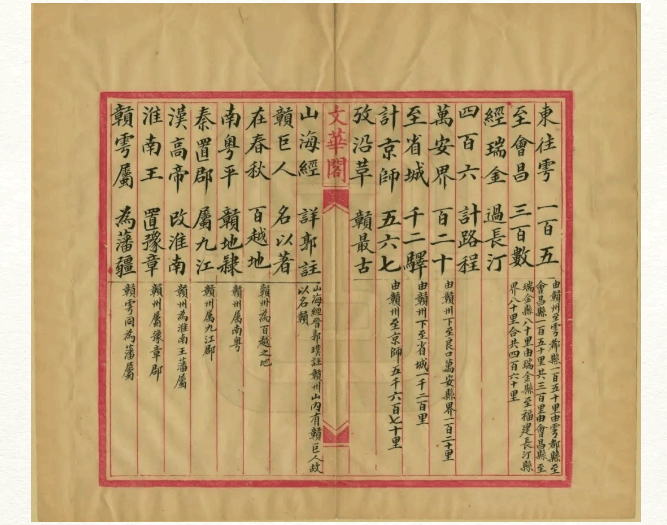 東往雩 一百五
至會昌 三百數
經瑞金 過長汀
四百六 計路程
由贛州至雩都縣一百五十里由雩都縣至
會昌縣一百五十里共三百里由會昌縣至
瑞金縣八十里由瑞金縣至福建長汀縣
界八十里合共四百六十里
萬安界 百二十 由贛州下至良口萬安縣界一百二十里
至省城 千二驛 由贛州下至省城一千二百里
計京師 五六七 由贛州至京師五千六百七十里
攷沿革 贛最古
文華閣
山海經 詳郭註
贛巨人 名以著
山海經晉郭璞註贛州山內有贛巨人故
以名贛
在春秋 百越地 贛州為百越之地
南粤平 贛地隸 贛州屬南粤
秦置郡 屬九江 贛州屬九江郡
漢高帝 改淮南 贛州為淮南王藩屬
淮南王 置豫章 贛州屬豫章郡
贛雩屬 為藩疆 贛雩同為藩屬